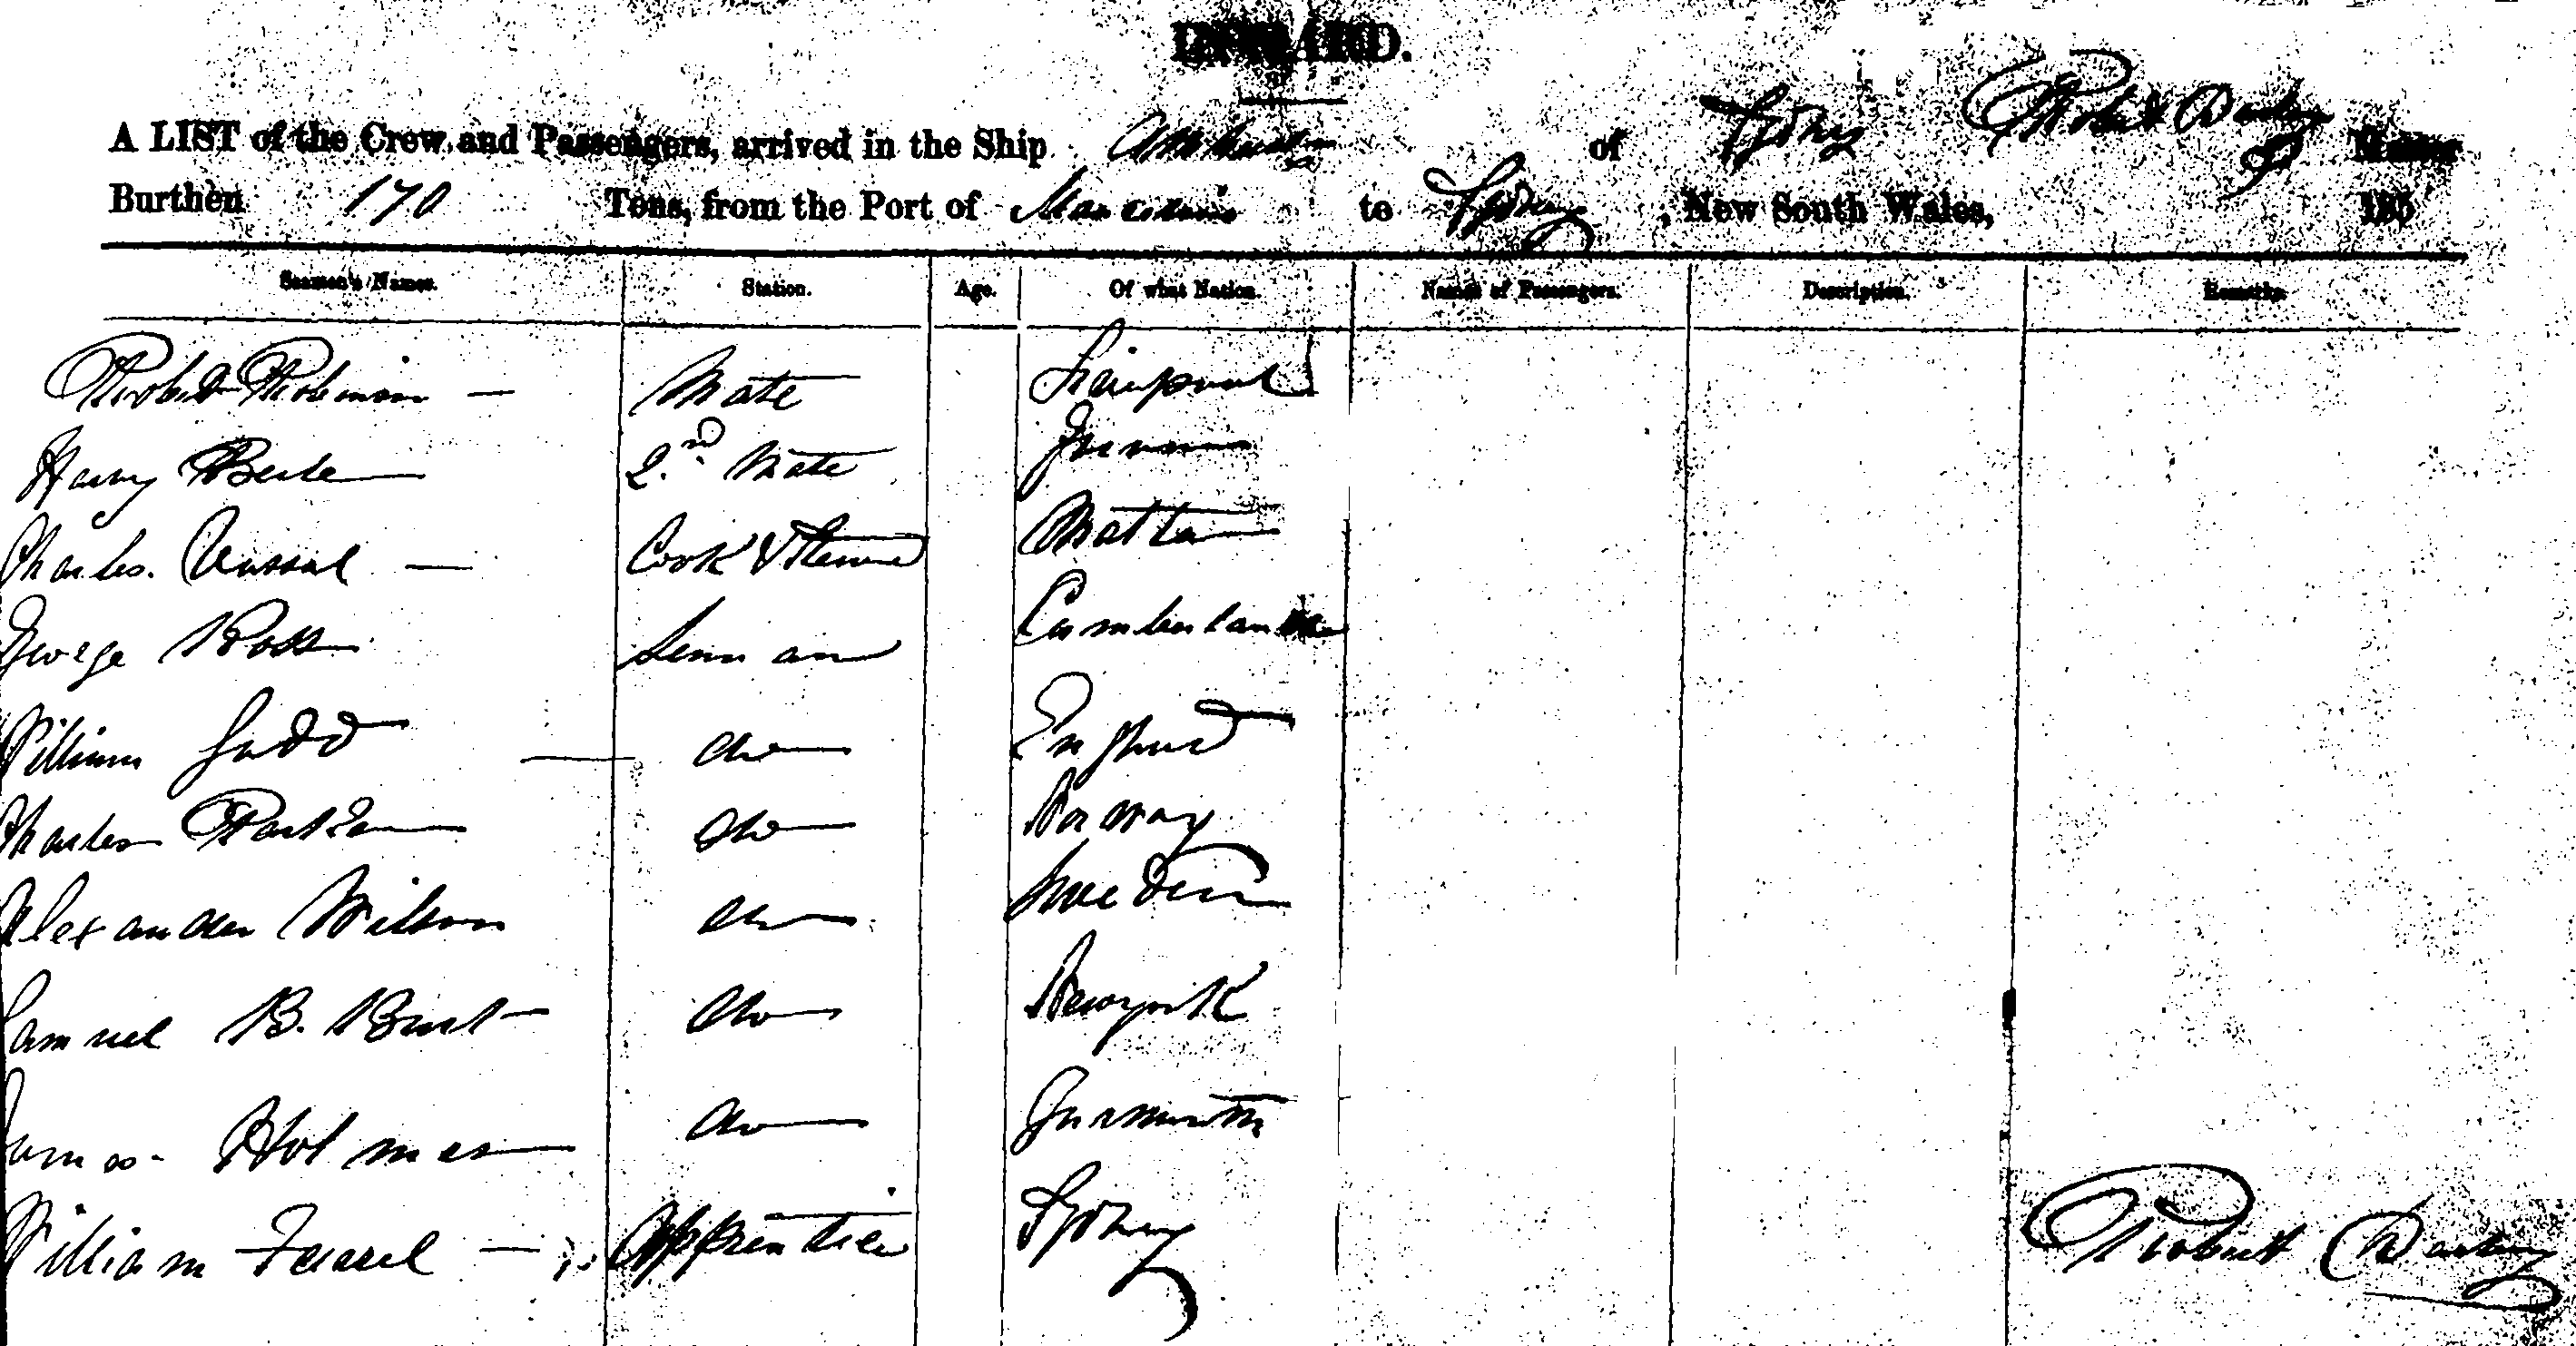 INWARD.
A LIST of the Crew and Passengers, arrived in the Ship of Sydney Robert Master
Burthen 170 Tons, from the Port of to Sydney, New South Wales, 185
Seamen's Names. Station. Age. Of what Nation. Names of Passengers. Description. Remarks.
Robert Robinson — Mate Liverpool
Harry 2nd Mate
Charles — Cook & Malta
George Ross Seaman Cumberland
William Judd — do England
Charles do Norway
Alexander Wilson do Sweden
Samuel B. do Newyork
James Holmes do
William — Apprentice Sydney
Robert